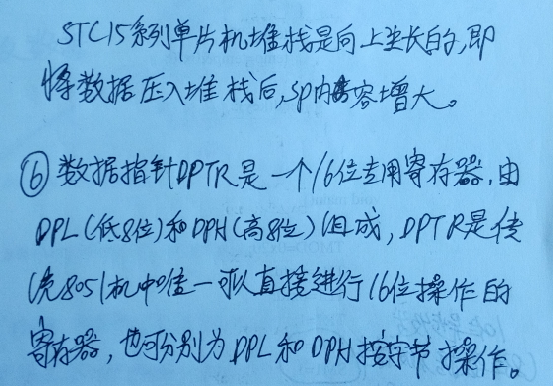 STC15系列单片机堆栈是向上生长的,即
将数据压入堆栈后,SP内容增大。
⑥数据指针DPTR是一个16位专用寄存器,由
DPL(低8位)和DPH(高8位)组成,DPTR是传
统8051机中唯一可以直接进行16位操作的
寄存器,也可分别为DPL和DPH按字节操作。